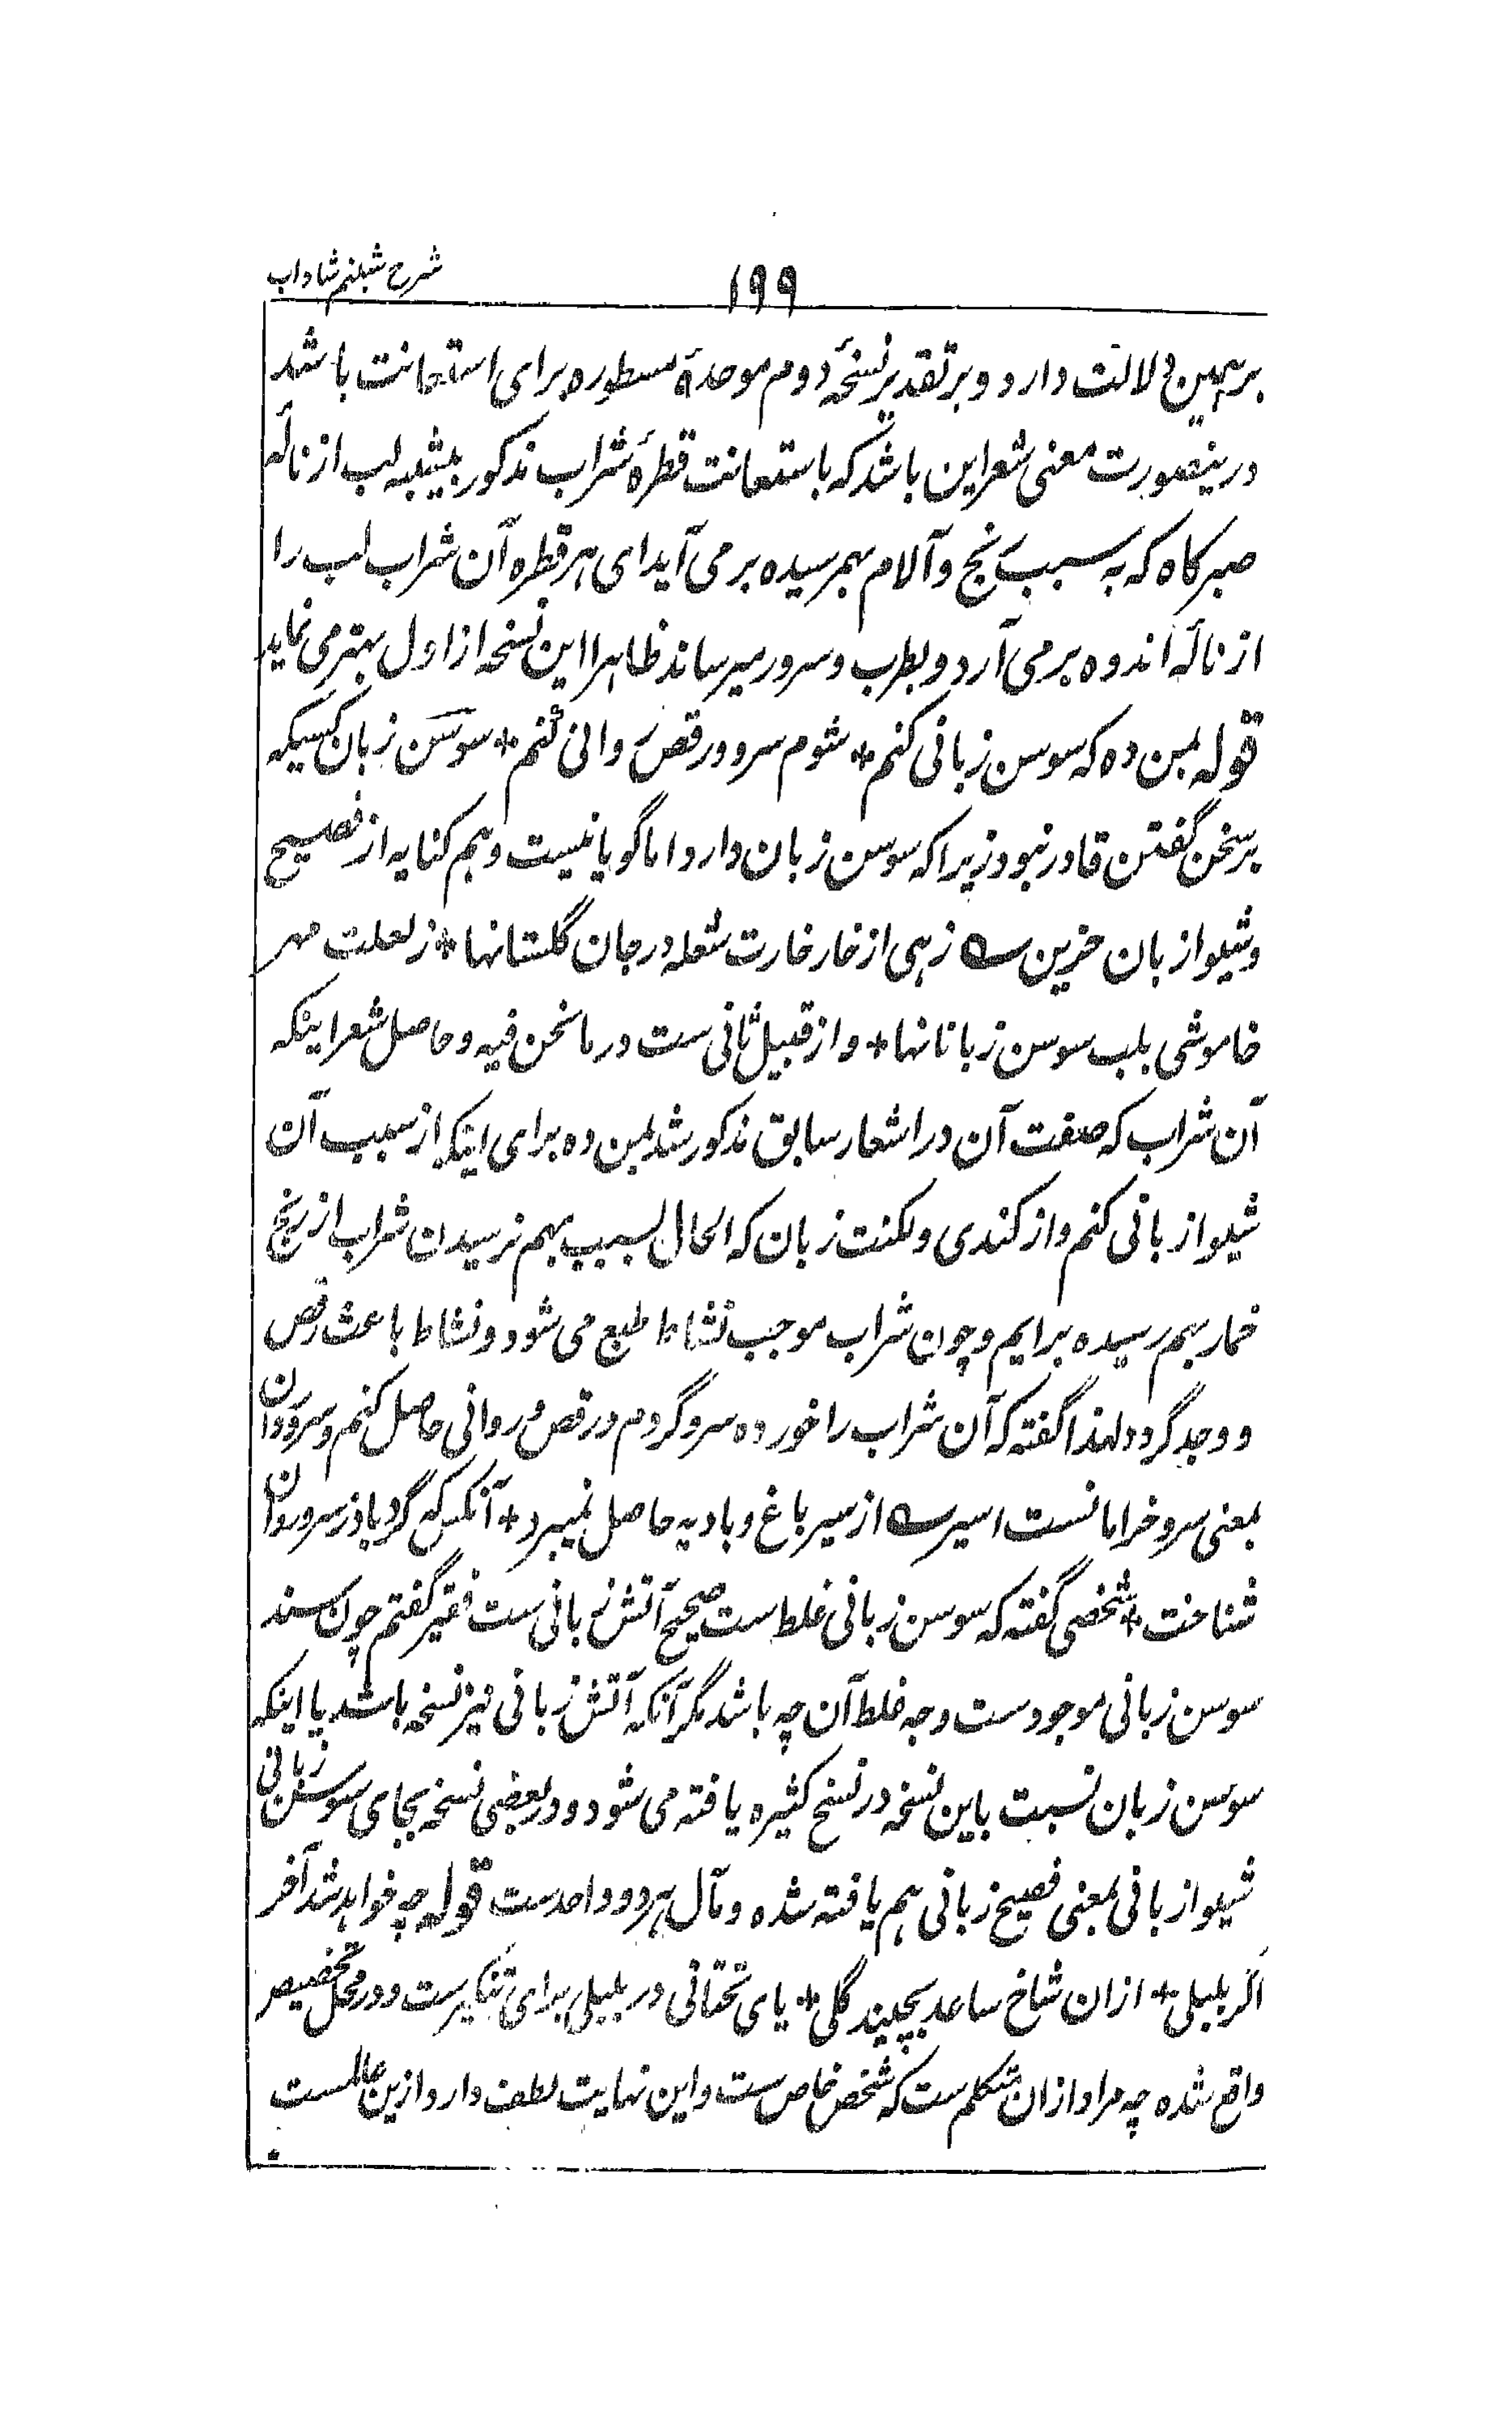 شرح شبنم شاداب
۱۹۹
برهمین دلالت دارد و بر تقدیر نسخهٔ دوم موحدهٔ مسطوره برای استعانت باشد
درینصورت معنی شعر این باشد که باستعانت قطرهٔ شراب مذکور بیشبه لب از نالهٔ
صبرکاه که به سبب رنج و آلام بهمرسیده برمی آید ای هر قطره آن شراب لب را
از نالهٔ اندوه برمی آرد و بطرب و سرور میرساند ظاهرا این نسخه از اول بهتر می نماید
قوله بمن ده که سوسن زبانی کنم + شوم سرو و رقص روانی کنم + سوسن زبان کسیکه
برسخن گفتن قادر نبود زیرا که سوسن زبان دارد اما گویا نیست و هم کنایه از فصیح
و شیوا زبان حزین ؎ زهی از خار خارت شعله در جان گلستانها + ز لعلت مهر
خاموشی بلب سوسن زبانانها + و از قبیل ثانی ست در ما نحن فیه و حاصل شعر اینکه
آن شراب که صفت آن در اشعار سابق مذکور شد بمن ده برای اینکه از سبب آن
شیوا زبانی کنم و از کندی و لکنت زبان که الحال بسبب بهم نرسیدن شراب از رنج
خمار بهم رسیده برایم و چون شراب موجب نشاط طبع می شود و نشاط باعث رقص
و وجد گردد لهذا گفته که آن شراب را خورده سرو گردم و رقص و روانی حاصل کنم و سرو روان
بمعنی سرو خرامانست اسیر ؎ از سیر باغ و بادیه حاصل نمیبرد + آنکس که گردباد ز سرو روان
شناخت + شخصی گفته که سوسن زبانی غلط ست صحیح آتش زبانی ست فقیر گفتم چون سند
سوسن زبانی موجودست وجه غلط آن چه باشد مگر آنکه آتش زبانی نیز نسخه باشد یا اینکه
سوسن زبان نسبت باین نسخه در نسخ کثیره یافته می شود و در بعضی نسخه بجای سوسن زبانی
شیوا زبانی بمعنی فصیح زبانی هم یافته شده و مآل هر دو واحدست قوله چه خواهد شد آخر
اگر بلبلی + ازان شاخ ساعد بچیند گلی + یای تحتانی در بلبلی برای تنکیرست و در محل تخصیص
واقع شده چه مراد ازان متکلم ست که شخص خاص ست و این نهایت لطف دارد ازین عالمست